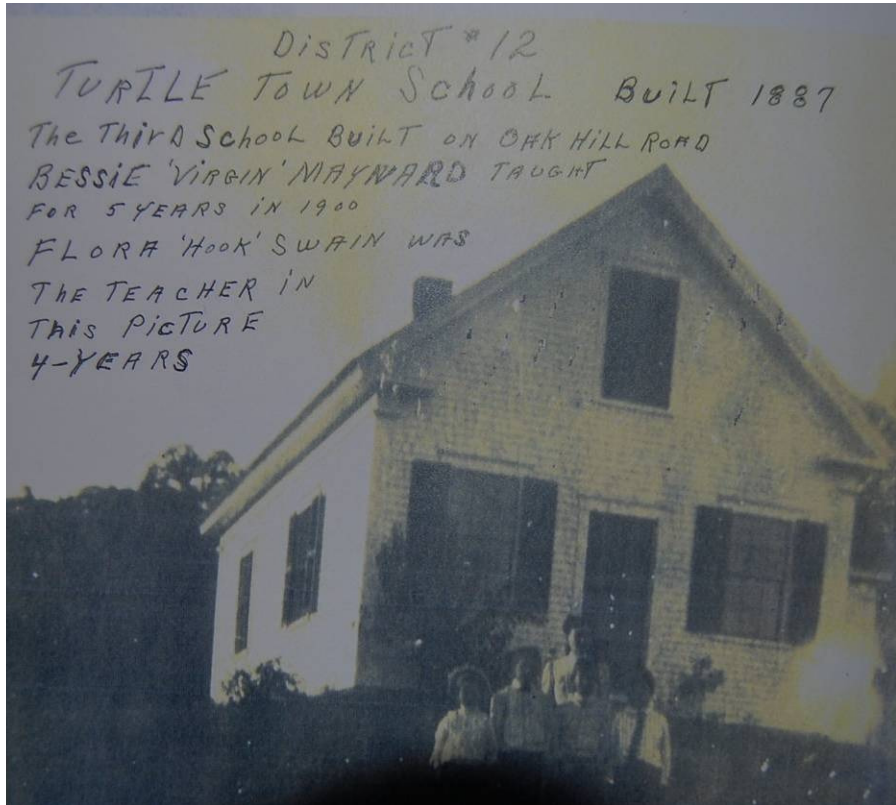 DISTRICT #12
TURTLE TOWN SCHOOL BUILT 1887
The Third School Built on OAK Hill Road
BESSIE 'VIRGIN' MAYNARD TAUGHT
FOR 5 YEARS IN 1900
FLORA 'HOOK' SWAIN WAS
The TEACHER IN
This PICTURE
4-YEARS